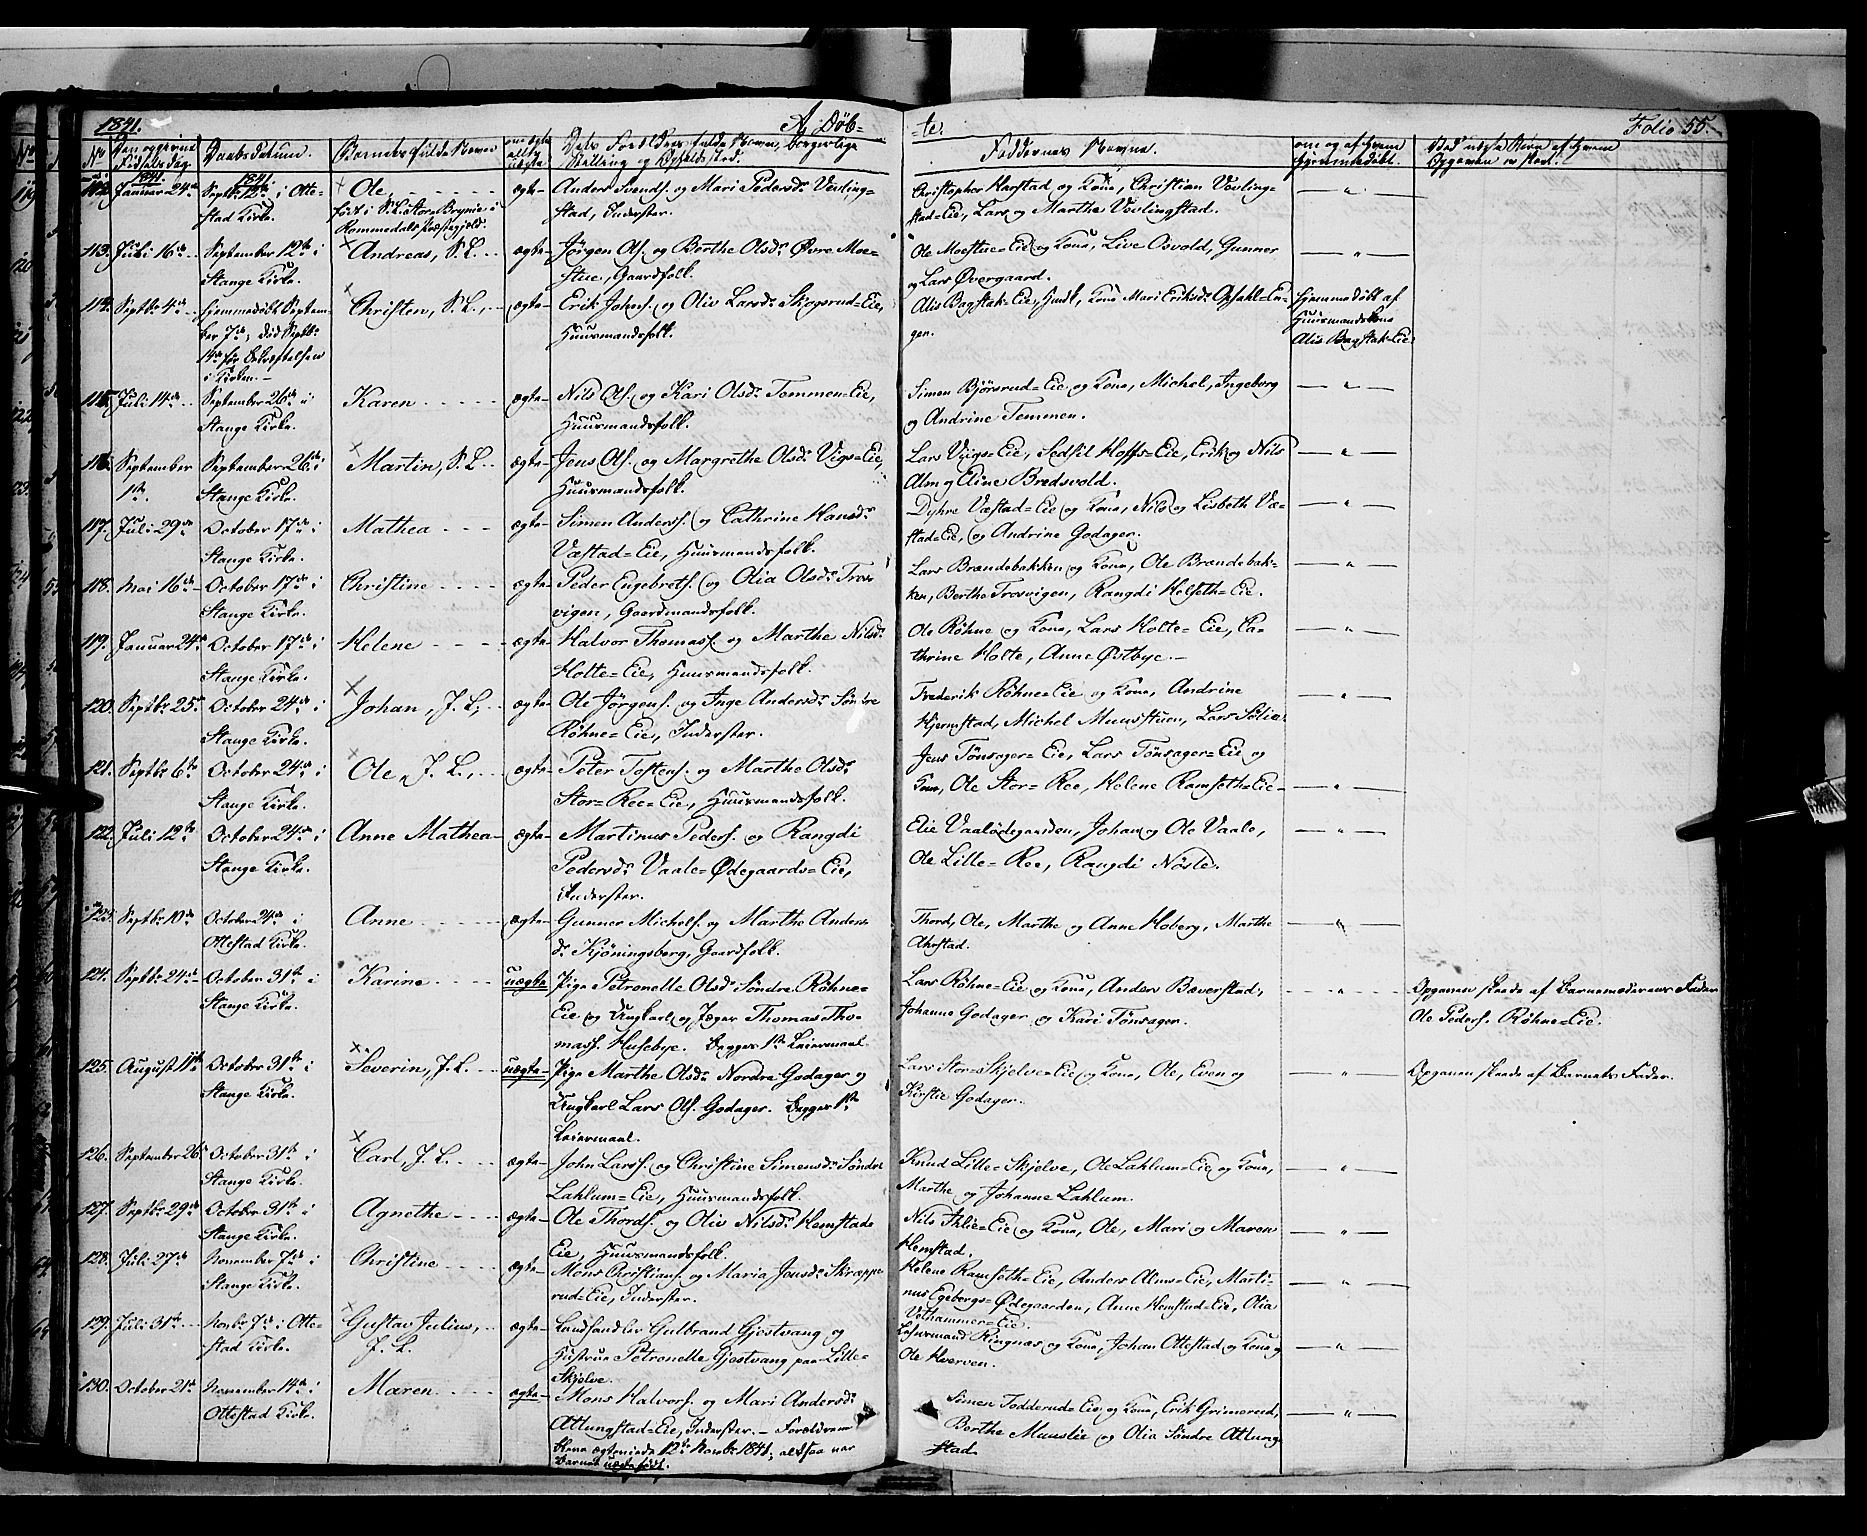 1841.
A. Døb=
=te.
Folio 55.
No
Den opgivne Fødselsdag.
Daabsdatum.
Barnets fulde Navn
om ægte eller uægte.
Dets Forældres fulde Navn, Borgerlige Stilling og Opholdssted.
Faddernes Navne.
om og af hvem hjemmedøbt.
112. 1841. Januar 24de
1841. Septbr. 12te i Otte=
stad Kirke.
Ole,
født i S. L. Store Brynie i
Rommedals Præstegjeld.
ægte
Anders Svends. og Mari Pedersdr. Vevling=
stad, Inderster.
Christopher Harstad og Kone, Christian Vevling=
stad=Eie, Lars og Marthe Vevlingstad.
113. Juli 16de
September 12te i
Stange Kirke.
Andreas, S. L.
ægte
Jørgen Ols. og Berthe Olsdr. Øvre Moe=
stue, Gaardfolk.
Ole Moestue=Eie og Kone, Live Osvold, Gunner
og Lars Overgaard.
114. Septbr. 4de
Hjemmedøbt Septem=
ber 7de, død Septbr.
14de før Bekræftelsen
i Kirken.
Christen, S. L.,
ægte
Erik Johns. og Oliv Larsdr. Skogsrud=Eie,
Huusmandsfolk.
Alis Bagstak=Eie, Kone Mari Eriksdr. Opsahl=En=
gen.
Hjemmedøbt af
Huusmandskone
Alis Bagstak=Eie
115. Juli 14de
September 26de i
Stange Kirke.
Karen
ægte
Nils Ols. og Kari Olsdr. Tommen=Eie,
Huusmandsfolk.
Simen Bjørsrud=Eie og Kone, Michel, Ingeborg
og Andrine Temmen.
116. September
1te.
September 26de i
Stange Kirke.
Martin, S. L.
ægte
Jens Ols. og Margrethe Olsdr. Vigs=Eie,
Huusmandsfolk.
Lars Viigs=Eie, Sedsil Hoffs=Eie, Erik og Nils
Alm og Eline Bredsvold.
117. Juli 29de
October 17de i
Stange Kirke.
Mathea
ægte
Simen Anders. og Cathrine Hansdr.
Væstad=Eie, Huusmandsfolk.
Dyhre Væstad=Eie og Kone, Nils og Lisbeth Væ=
stad=Eie, og Andrine Godager.
118. Mai 16de
October 17de i
Stange Kirke.
Christine
ægte
Peder Engebrets. og Olia Olsdr. Tros
vigen, Gaardmandsfolk.
Lars Brændebakken og Kone, Ole Brændebak=
ken, Berthe Trosvigen, Rangdi Holseth=Eie.
119. Januar 24de
October 17de i
Stange Kirke.
Helene
ægte
Halvor Thomas. og Marthe Nilsdr.
Holte=Eie, Huusmandsfolk.
Ole Røhne og Kone, Lars Holte=Eie, Ca=
thrine Holte, Anne Østbye.
120. Septbr. 25de
October 24de i
Stange Kirke.
Johan, J. L.,
ægte
Ole Jørgens. og Inge Andersdr. Søndre
Røhne=Eie, Inderster.
Frederik Røhne=Eie og Kone, Andrine
Hjermstad, Michel Muusstuen, Lars Solie.
121. Septbr. 6te
October 24de i
Stange Kirke.
Ole, J. L.,
ægte
Peter Tostens. og Marthe Olsdr.
Stor=Ree=Eie, Huusmandsfolk.
Jens Tønsager=Eie, Lars Tønsager=Eie og
Kone, Ole Stor=Ree, Helene Ramseth=Eie
122. Juli 12te
October 24de i
Stange Kirke.
Anne Mathea
ægte
Martinus Peders. og Rangdi
Pedersdr. Vaale=Ødegaards=Eie,
Inderster.
Elie Vaalødegaarden, Johan og Ole Vaale,
Ole Lille=Ree, Rangdi Nøsle.
123. Septbr. 10de
October 24de i
Ottestad Kirke.
Anne
ægte
Gunner Michels. og Marthe Anders
dr. Kjøningsberg, Gaardfolk.
Thord, Ole, Marthe og Anne Hoberg, Marthe
Ahrstad.
124. Septbr. 24de
October 31te i
Stange Kirke.
Karine
uægte
Pige Petronelle Olsdr. Søndre Røhne=
Eie og Ungkarl og Jæger Thomas Tho=
mass. Husebye. Begges 1te Leiermaal.
Lars Røhne=Eie og Kone, Anders Bæverstad,
Johanne Godager og Kari Tønsager.
Opgaven skeede af Barnemoderens Fader
Ole Peders. Røhne=Eie.
125. August 11te
October 31te i
Stange Kirke.
Severin, J. L.
uægte
Pige Marthe Olsdr. Nordre Godager og
Ungkarl Lars Ols. Godager. Begges 1te
Leiermaal.
Lars Stor=Skjelve=Eie og Kone, Ole, Even og
Kirstie Godager.
Opgaven skeede af Barnets Fader.
126. September 26de
October 31te i
Stange Kirke.
Carl, J. L.
ægte
John Larss. og Christine Simensdr. Søndre
Lahlum=Eie, Huusmandsfolk.
Knud Lille=Skjelve, Ole Lahlum=Eie og Kone,
Marthe og Johanne Lahlum.
127. Septbr. 29de
October 31te i
Stange Kirke.
Agnethe
ægte
Ole Thords. og Oliv Nilsdr. Hemstad=
Eie, Huusmandsfolk.
Nils Ihlie=Eie og Kone, Ole, Mari og Maren
Hemstad.
128. Juli 27de
November 7de i
Stange Kirke.
Christine
ægte
Mons Christians. og Maria Jensdr. Skræppe
rud=Eie, Inderster.
Helene Ramseth=Eie, Anders Alms=Eie, Marti=
nus Egebergs=Ødegaarden, Anne Hemstad=Eie, Olia
Volhammer=Eie.
129. Juli 31te
Novbr. 7de i Otte=
stad Kirke.
Gustav Julius,
J. L.
ægte
Landhandler Gulbrand Gjestvang og
Hustrue Petronelle Gjestvang paa Lille=
Skjelve.
Lehnsmand Ringnæs og Kone, Johan Ottestad og Kone og
Ole Hverven.
130. October 21de
November 14de i
Ottestad Kirke.
Maren
ægte
Mons Halvors. og Mari Andersdr.
Attungstad=Eie, Inderster. Forældrene
bleve ægteviede 12te Novbr. 1841, altsaa var
Barnet uægtefødt.
Simen Fodderud=Eie og Kone, Erik Grimerud,
Berthe Muuslie og Olia Søndre Attung=
stad